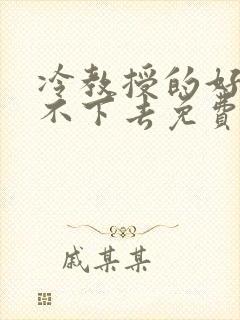 冷教授的好
不下去免费
戚某某